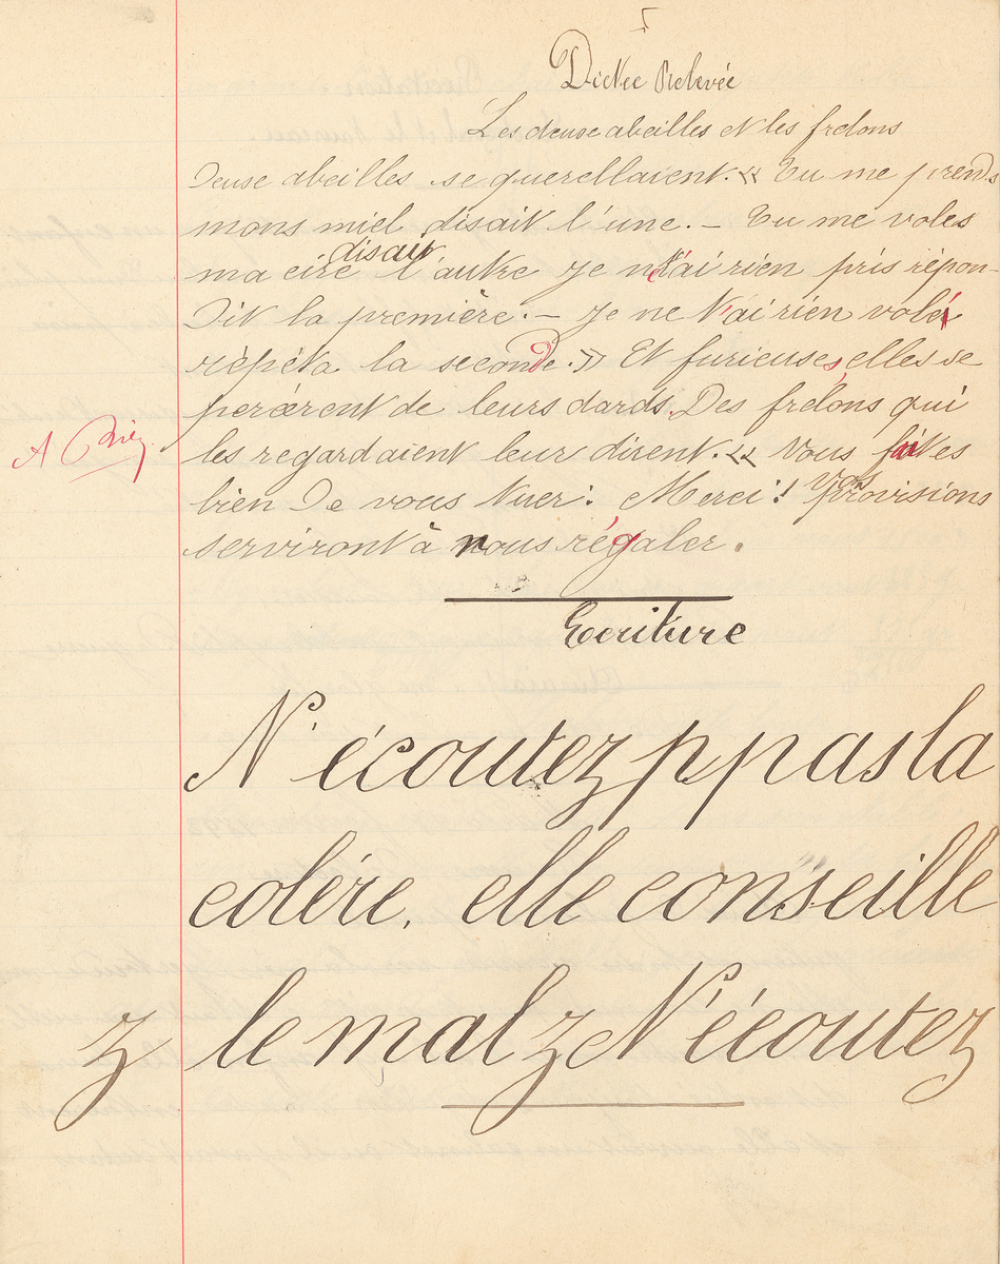 5
Dictée Relevée
Les deuse abeilles et les frelons
Deuse abeilles se querellaient. « Tu me prends
mons miel disait l'une. — Tu me voles
ma cire disait l'autre Je ne t'ai rien pris répon-
dit la première. — Je ne t'ai rien volé
répéta la seconde. » Et furieuses, elles se
percèrent de leurs dards. Des frelons qui
A Bien les regardaient leur dirent. « Vous faites
bien de vous tuer : Merci ! vos provisions
serviront à nous régaler.
Ecriture
N'écoutez p pas la
colère. elle conseille
z le mal z N'écoutez